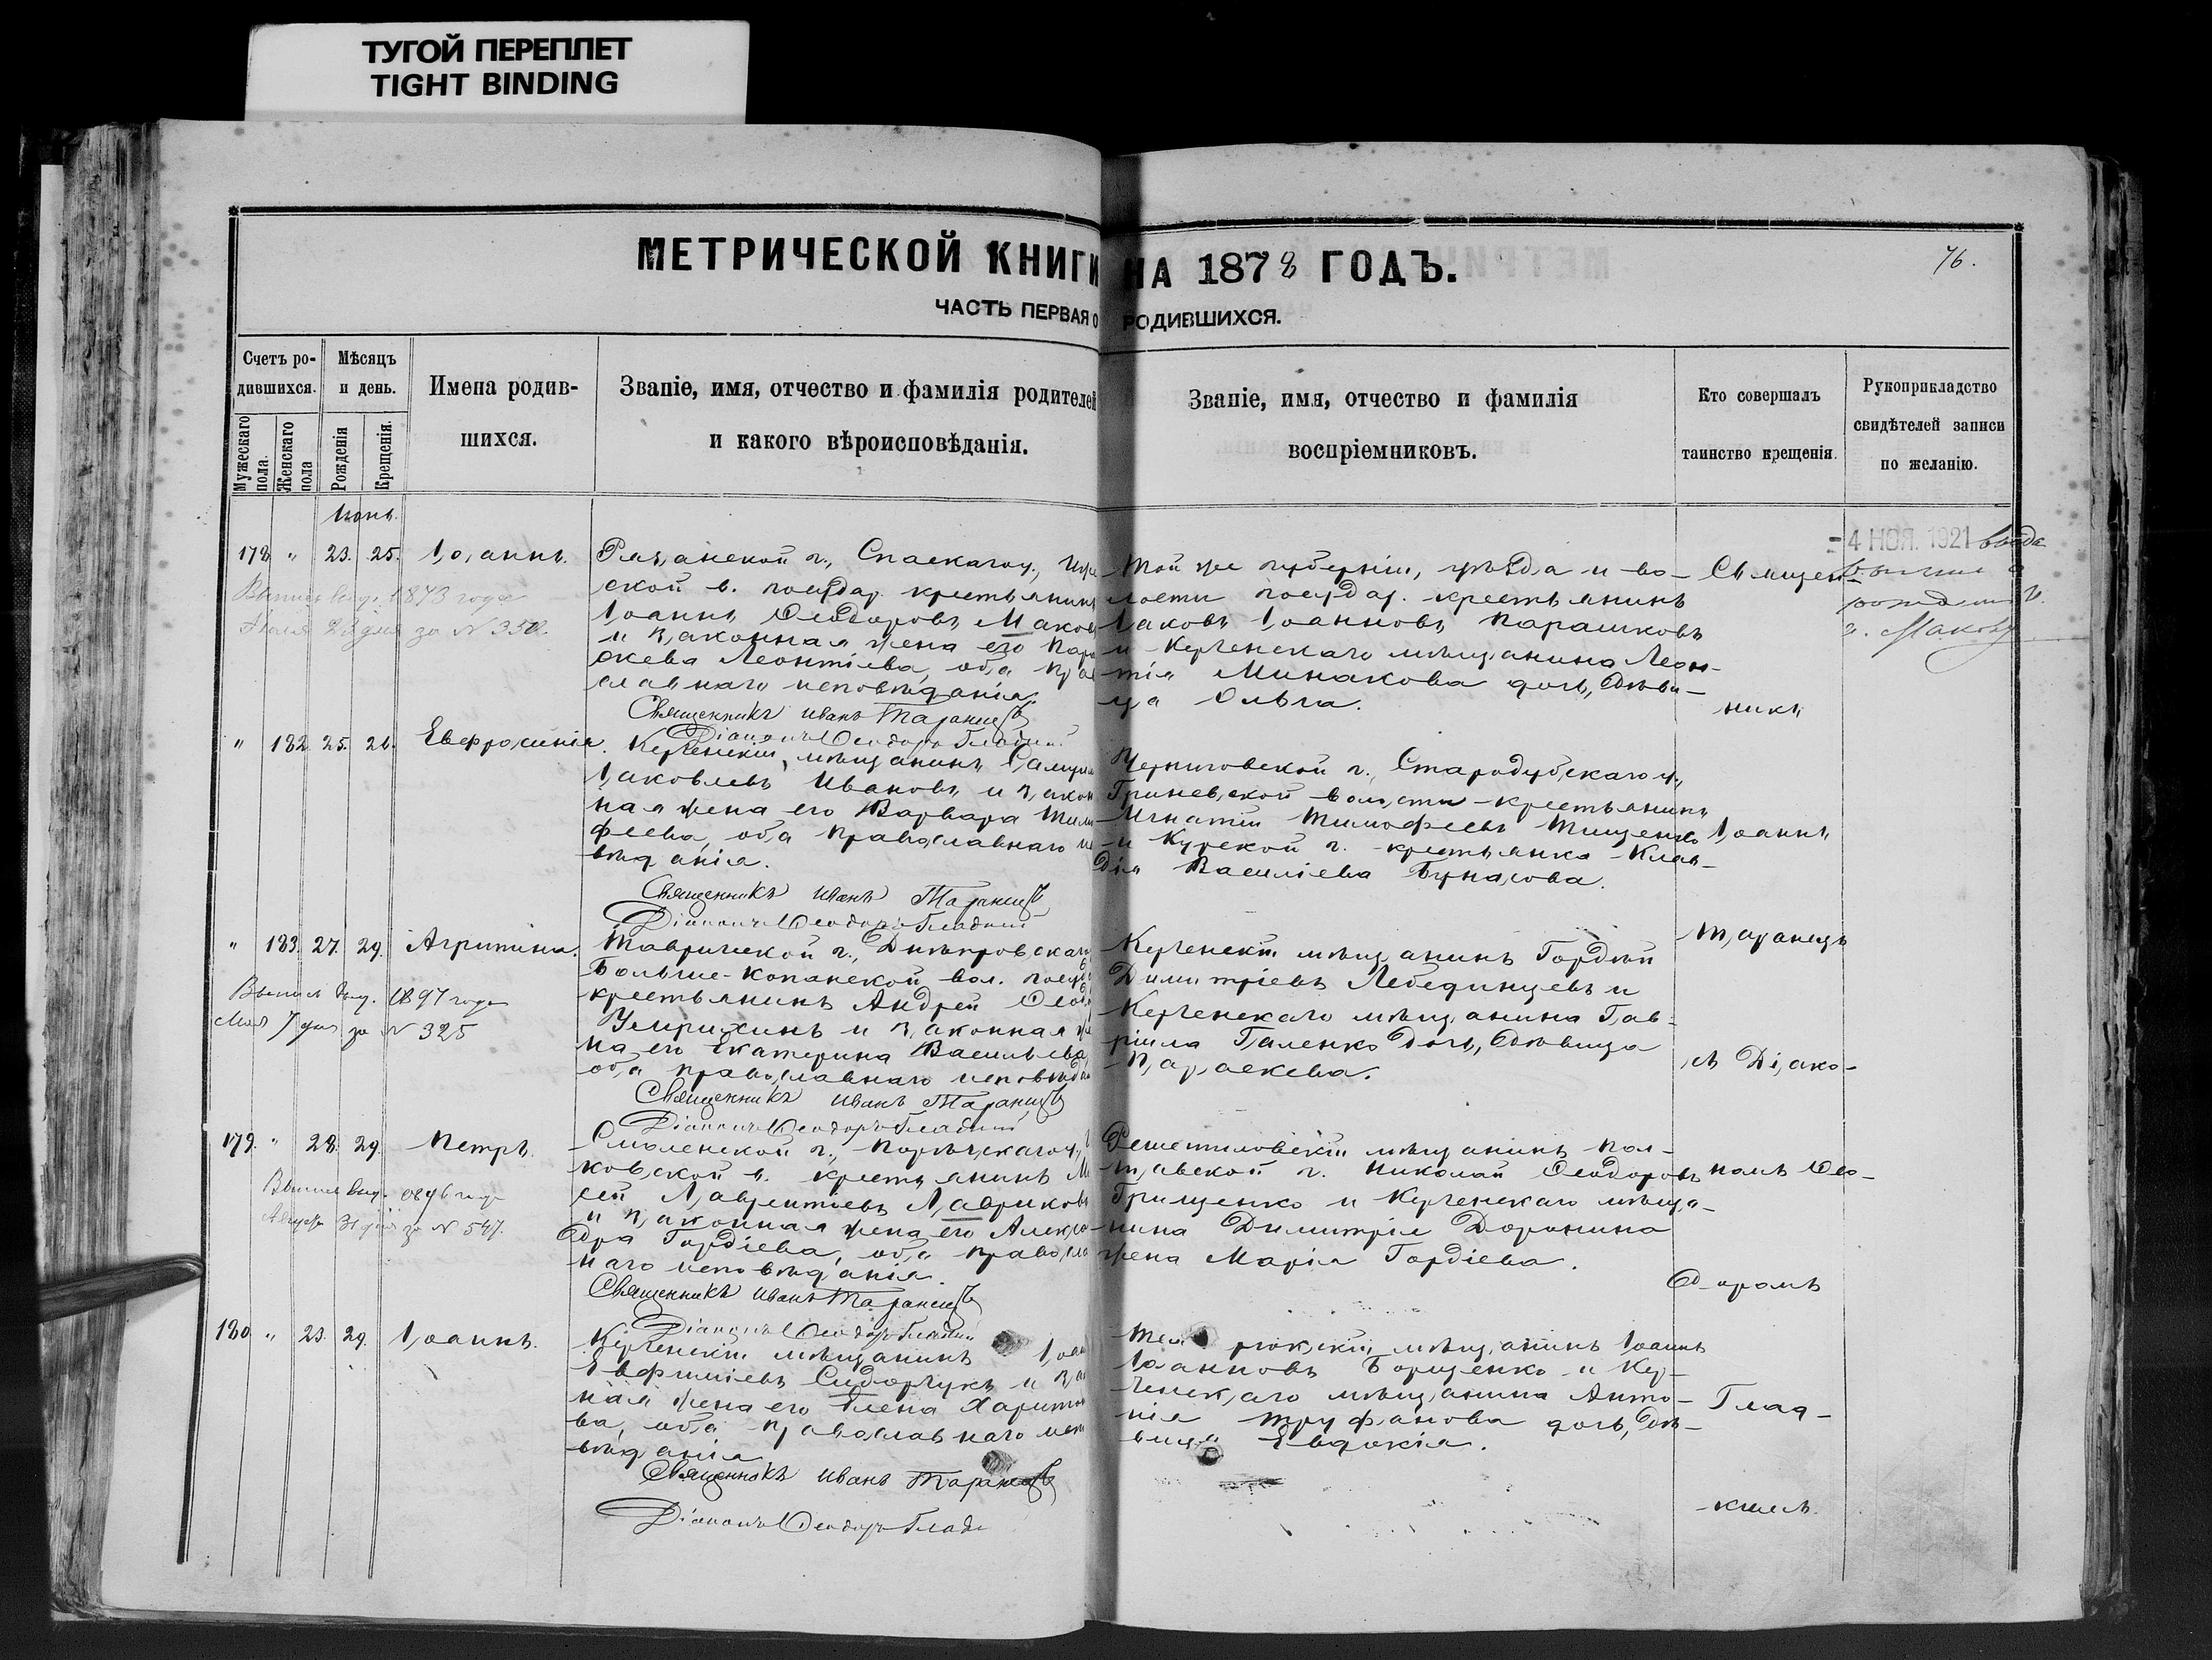 ТУГОЙ ПЕРЕПЛЕТ
TIGHT BINDING
МЕТРИЧЕСКОЙ КНИГИ НА 1878 ГОДЪ.
76.
ЧАСТЬ ПЕРВАЯ О РОДИВШИХСЯ.
Счетъ родившихся.
Мужескаго пола.
Женскаго пола
Мѣсяцъ и день.
Рожденія
Крещенія.
Имена родившихся.
Званіе, имя, отчество и фамилія родителей
и какого вѣроисповѣданія.
Званіе, имя, отчество и фамилія
воспріемниковъ.
Кто совершалъ
таинство крещенія.
Рукоприкладство
свидѣтелей записи
по желанію.
Іюнь.
178 " 23. 25. Іоаннъ.
Рязанской г., Спаскаго у.,
ской в. государ. крестьянинъ
Іоаннъ Ѳеодоровъ Маков
и законная жена его Пара
скева Леонтіева, оба пра
славнаго исповѣданія.
Священникъ Иванъ Таранецъ
Діаконъ Ѳеодоръ Гладкій
Той же губерніи, уѣзда и во-
лости государ. крестьянинъ
Іаковъ Іоанновъ Парашковъ
и Керченскаго мѣщанина Леон-
тія Минакова дочь, дѣви-
ца Ольга.
4 НОЯ. 1921
рожден
Макову
" 182. 25. 26. Евфросинія.
Керченскій мѣщанинъ
Іаковлевъ Ивановъ и закон
ная жена его Варвара Тимо
феева, оба православнаго ис
вѣданія.
Священникъ Иванъ Таранецъ
Діаконъ Ѳеодоръ Гладкій
Черниговской г., Стародубскаго у.,
Гриневской волости крестьянинъ
Игнатій Тимофеевъ Тищенко
и Курской г. крестьянка Клав-
дія Василіева Бунакова.
" 183. 27. 29. Агрипина.
Выпись выд. 1897 года
Мая 7 дня за N 325
Таврической г., Днѣпровскаго
Больше-Копанской вол. госуд
крестьянинъ Андрей Ѳеод
и законная же
на его Екатерина Васильева
оба православнаго исповѣдан
Священникъ Иванъ Таранецъ
Діаконъ Ѳеодоръ Гладкій
Керченскій мѣщанинъ Гордѣй
Димитріевъ Лебединцевъ и
Керченскаго мѣщанина Гав-
ріила Галенко дочь, дѣвица
Параскева.
179. " 28. 29. Петръ.
Выпись выд. 1896 года
Августа 31 дня за N 547.
Смоленской г., Порѣчскаго у.,
ковской в. крестьянинъ М
сей Лаврентіевъ Лавриковъ
и законная жена его Алекса
дра Гордіева, оба правосла
наго исповѣданія.
Священникъ Иванъ Таранецъ
Діаконъ Ѳеодоръ Гладкій
Решетиловскій мѣщанинъ Пол-
тавской г. Николай Ѳеодоровъ
Грищенко и Керченскаго мѣща-
нина Димитрія Доронина
жена Марія Гордіева.
180. " 23. 29. Іоаннъ.
Керченскій мѣщанинъ Іоан
Евфиміевъ Сидорчукъ и за
ная жена его Елена Харитон
ва, оба православнаго исп
вѣданія
Священникъ Иванъ Таранецъ
Діаконъ Ѳеодоръ Гладк
мѣщанинъ Іоаннъ
Іоанновъ Борщенко и Кер-
ченскаго мѣщанина Анто-
нія Труфанова дочь, дѣ-
вица Евдокія.
Священ-
никъ
Іоаннъ
Таранецъ
съ Діако-
номъ Ѳео-
доромъ
Глад-
кимъ.